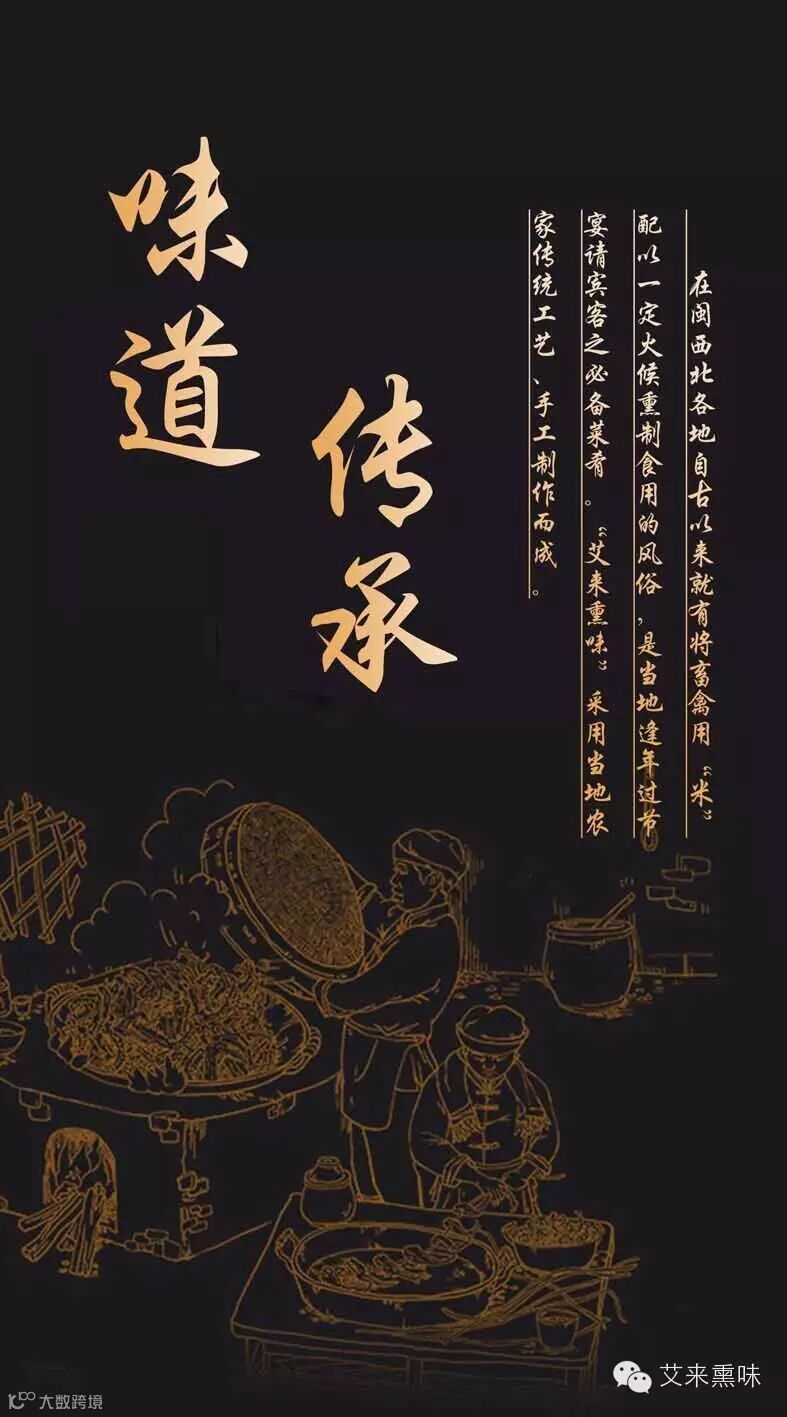 味道
传承
在闽西北各地自古以来就有将畜禽用“米”
配以一定火候熏制食用的风俗，是当地逢年过节
宴请宾客之必备菜肴。“艾来熏味”采用当地农
家传统工艺、手工制作而成。
艾来熏味
大数跨境